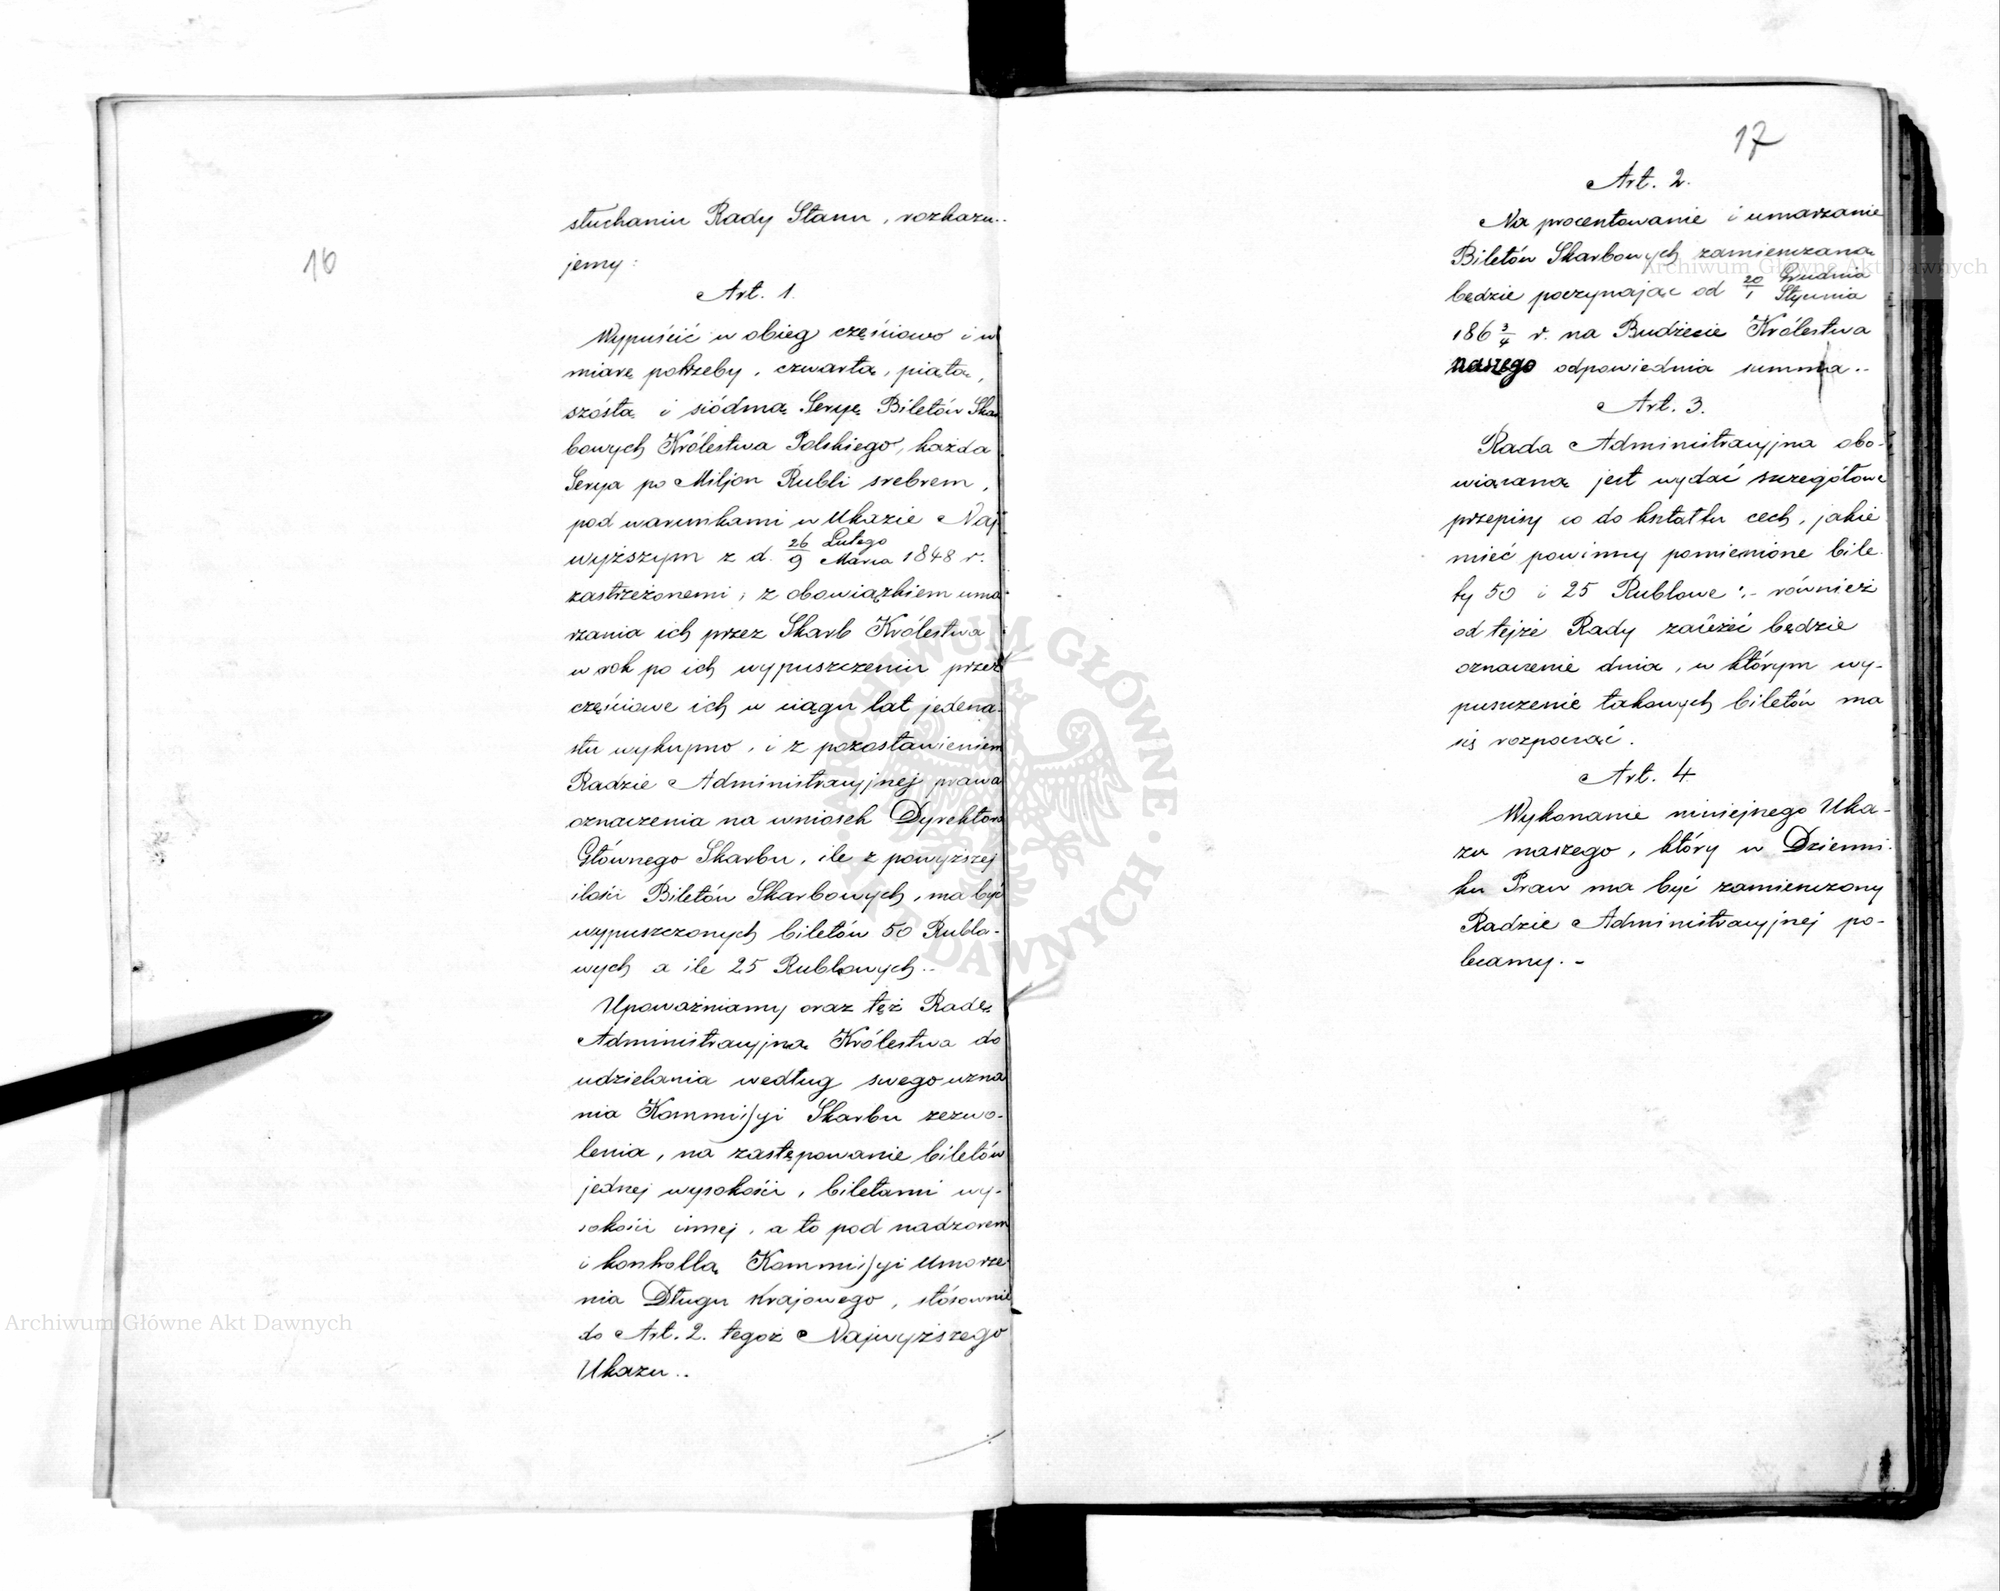 16
słuchaniu Rady Stanu, rozkazu..
jemy:
Art. 1.
Wypuścić w obieg częściowo i w
miarę potrzeby, czwartą, piątą,
szóstą i siódmą Seryę Biletów Skar
bowych Królestwa Polskiego, każda
Serya po Miljon Rubli srebrem,
pod warunkami w Ukazie Naj
wyższym z d. 26/9 Lutego/Marca 1848 r.
zastrzeżonemi; z obowiązkiem uma
rzania ich przez Skarb Królestwa
w rok po ich wypuszczeniu przez
częściowe ich w ciągu lat jedena-
stu wykupno, i z pozostawieniem
Radzie Administracyjnej prawa
oznaczenia na wniosek Dyrektora
Głównego Skarbu, ile z powyższej
ilości Biletów Skarbowych, ma być
wypuszczonych biletów 50 Rublo-
wych a ile 25 Rublowych..
Upoważniamy oraz też Radę
Administracyjną Królestwa do
udzielania według swego uzna
nia Kommissyi Skarbu zezwo-
lenia, na zastępowanie biletów
jednej wysokości, biletami wy-
sokości innej, a to pod nadzorem
i kontrollą Kommissyi Umorze
nia Długu Krajowego, stósownie
do Art. 2. tegoż Najwyższego
Ukazu..
17
Art. 2.
Na procentowanie i umarzanie
Biletów Skarbowych zamieszczaną
będzie poczynając od 20/1 Grudnia/Stycznia
186 3/4 r. na Budżecie Królestwa
naszego odpowiednia summa..
Art. 3.
Rada Administracyjna obo-
wiązaną jest wydać szczegółowe
przepisy co do kształtu cech, jakie
mieć powinny pomienione bile
ty 50 i 25 Rublowe:- również
od tejże Rady zależeć będzie
oznaczenie dnia, w którym wy-
puszczenie takowych biletów ma
się rozpocząć.
Art. 4
Wykonanie niniejszego Uka-
zu naszego, który w Dzienni-
ku Praw ma być zamieszczony
Radzie Administracyjnej po-
lecamy.-
Archiwum Główne Akt Dawnych
ARCHIWUM GŁÓWNE AKT DAWNYCH
Archiwum Główne Akt Dawnych